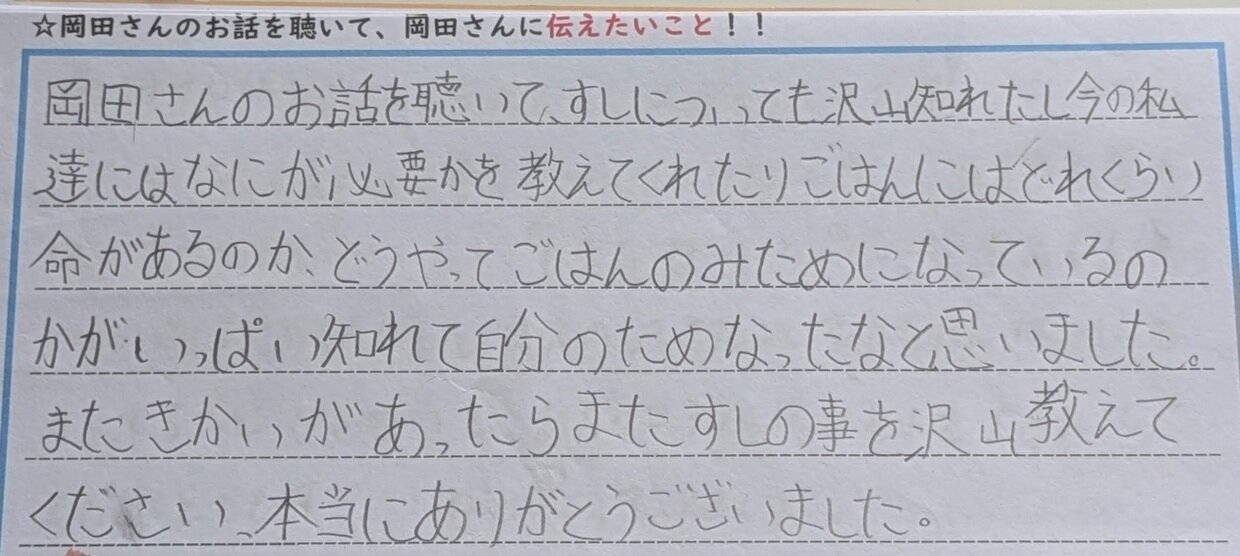 ☆岡田さんのお話を聴いて、岡田さんに伝えたいこと！！
岡田さんのお話を聴いて、すしについても沢山知れたし今の私
達にはなにが必要かを教えてくれたりごはんにはどれくらい
命があるのか、どうやってごはんのみためになっているの
かがいっぱい知れて自分のためなったなと思いました。
またきかいがあったらまたすしの事を沢山教えて
ください、本当にありがとうございました。